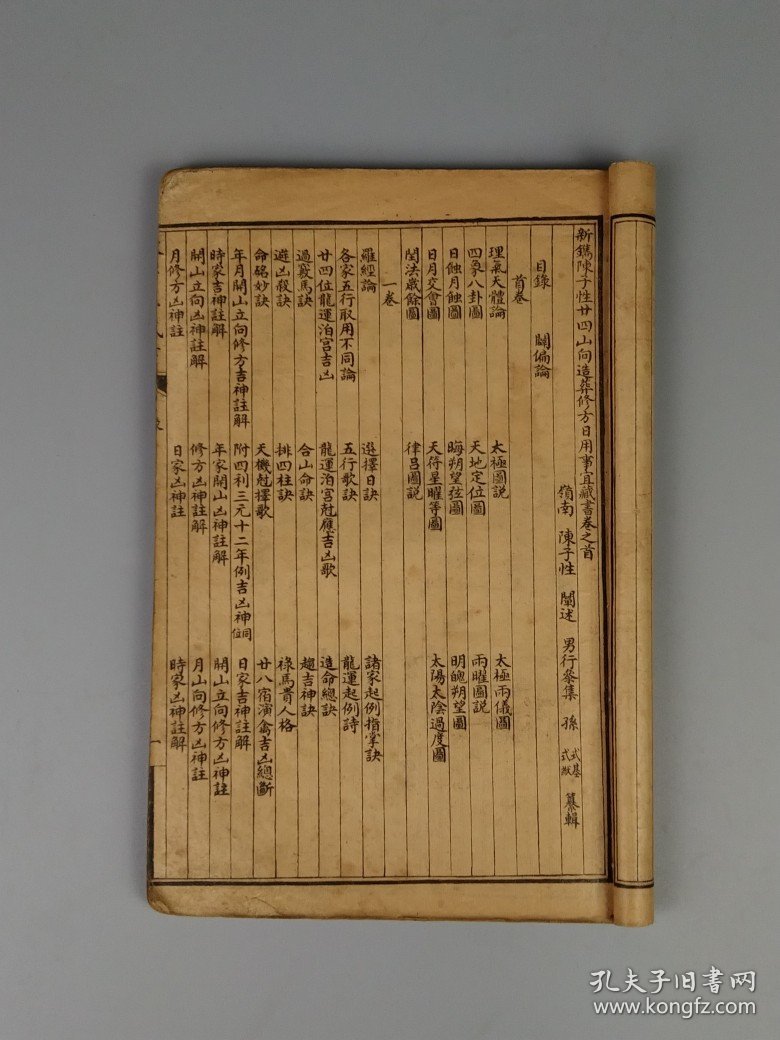 新鐫陳子性廿四山向造葬修方日用事宜藏書卷之首
嶺南 陳子性 闡述 男行 集 孫 式 式 纂輯
目錄 闢偏論
首卷
理氣天體論 太極圖說 太極兩儀圖
四象八卦圖 天地定位圖 兩曜圖說
日蝕月蝕圖 晦朔望弦圖 明魄朔望圖
日月交會圖 天符星曜等圖 太陽太陰過度圖
閏法歲餘圖 律呂圖說
一卷
羅經論 選擇日訣 諸家起例指掌訣
各家五行取用不同論 五行歌訣 龍運起例詩
廿四位龍運泊宮吉凶 龍運泊宮尅應吉凶歌 造命總訣
過發馬訣 合山命訣 趨吉神訣
避凶殺訣 排四柱訣 祿馬貴人格
命硌妙訣 天機尅擇歌 廿八宿演禽吉凶總斷
年月開山立向修方吉神註解 附四利三元十二年例吉凶神同位 日家吉神註解
時家吉神註解 年家開山凶神註解 開山立向修方凶神註
開山立向凶神註解 修方凶神註解 月山向修方凶神註
月修方凶神註 日家凶神註 時家凶神註解
一
孔夫子旧书网
www.kongfz.com